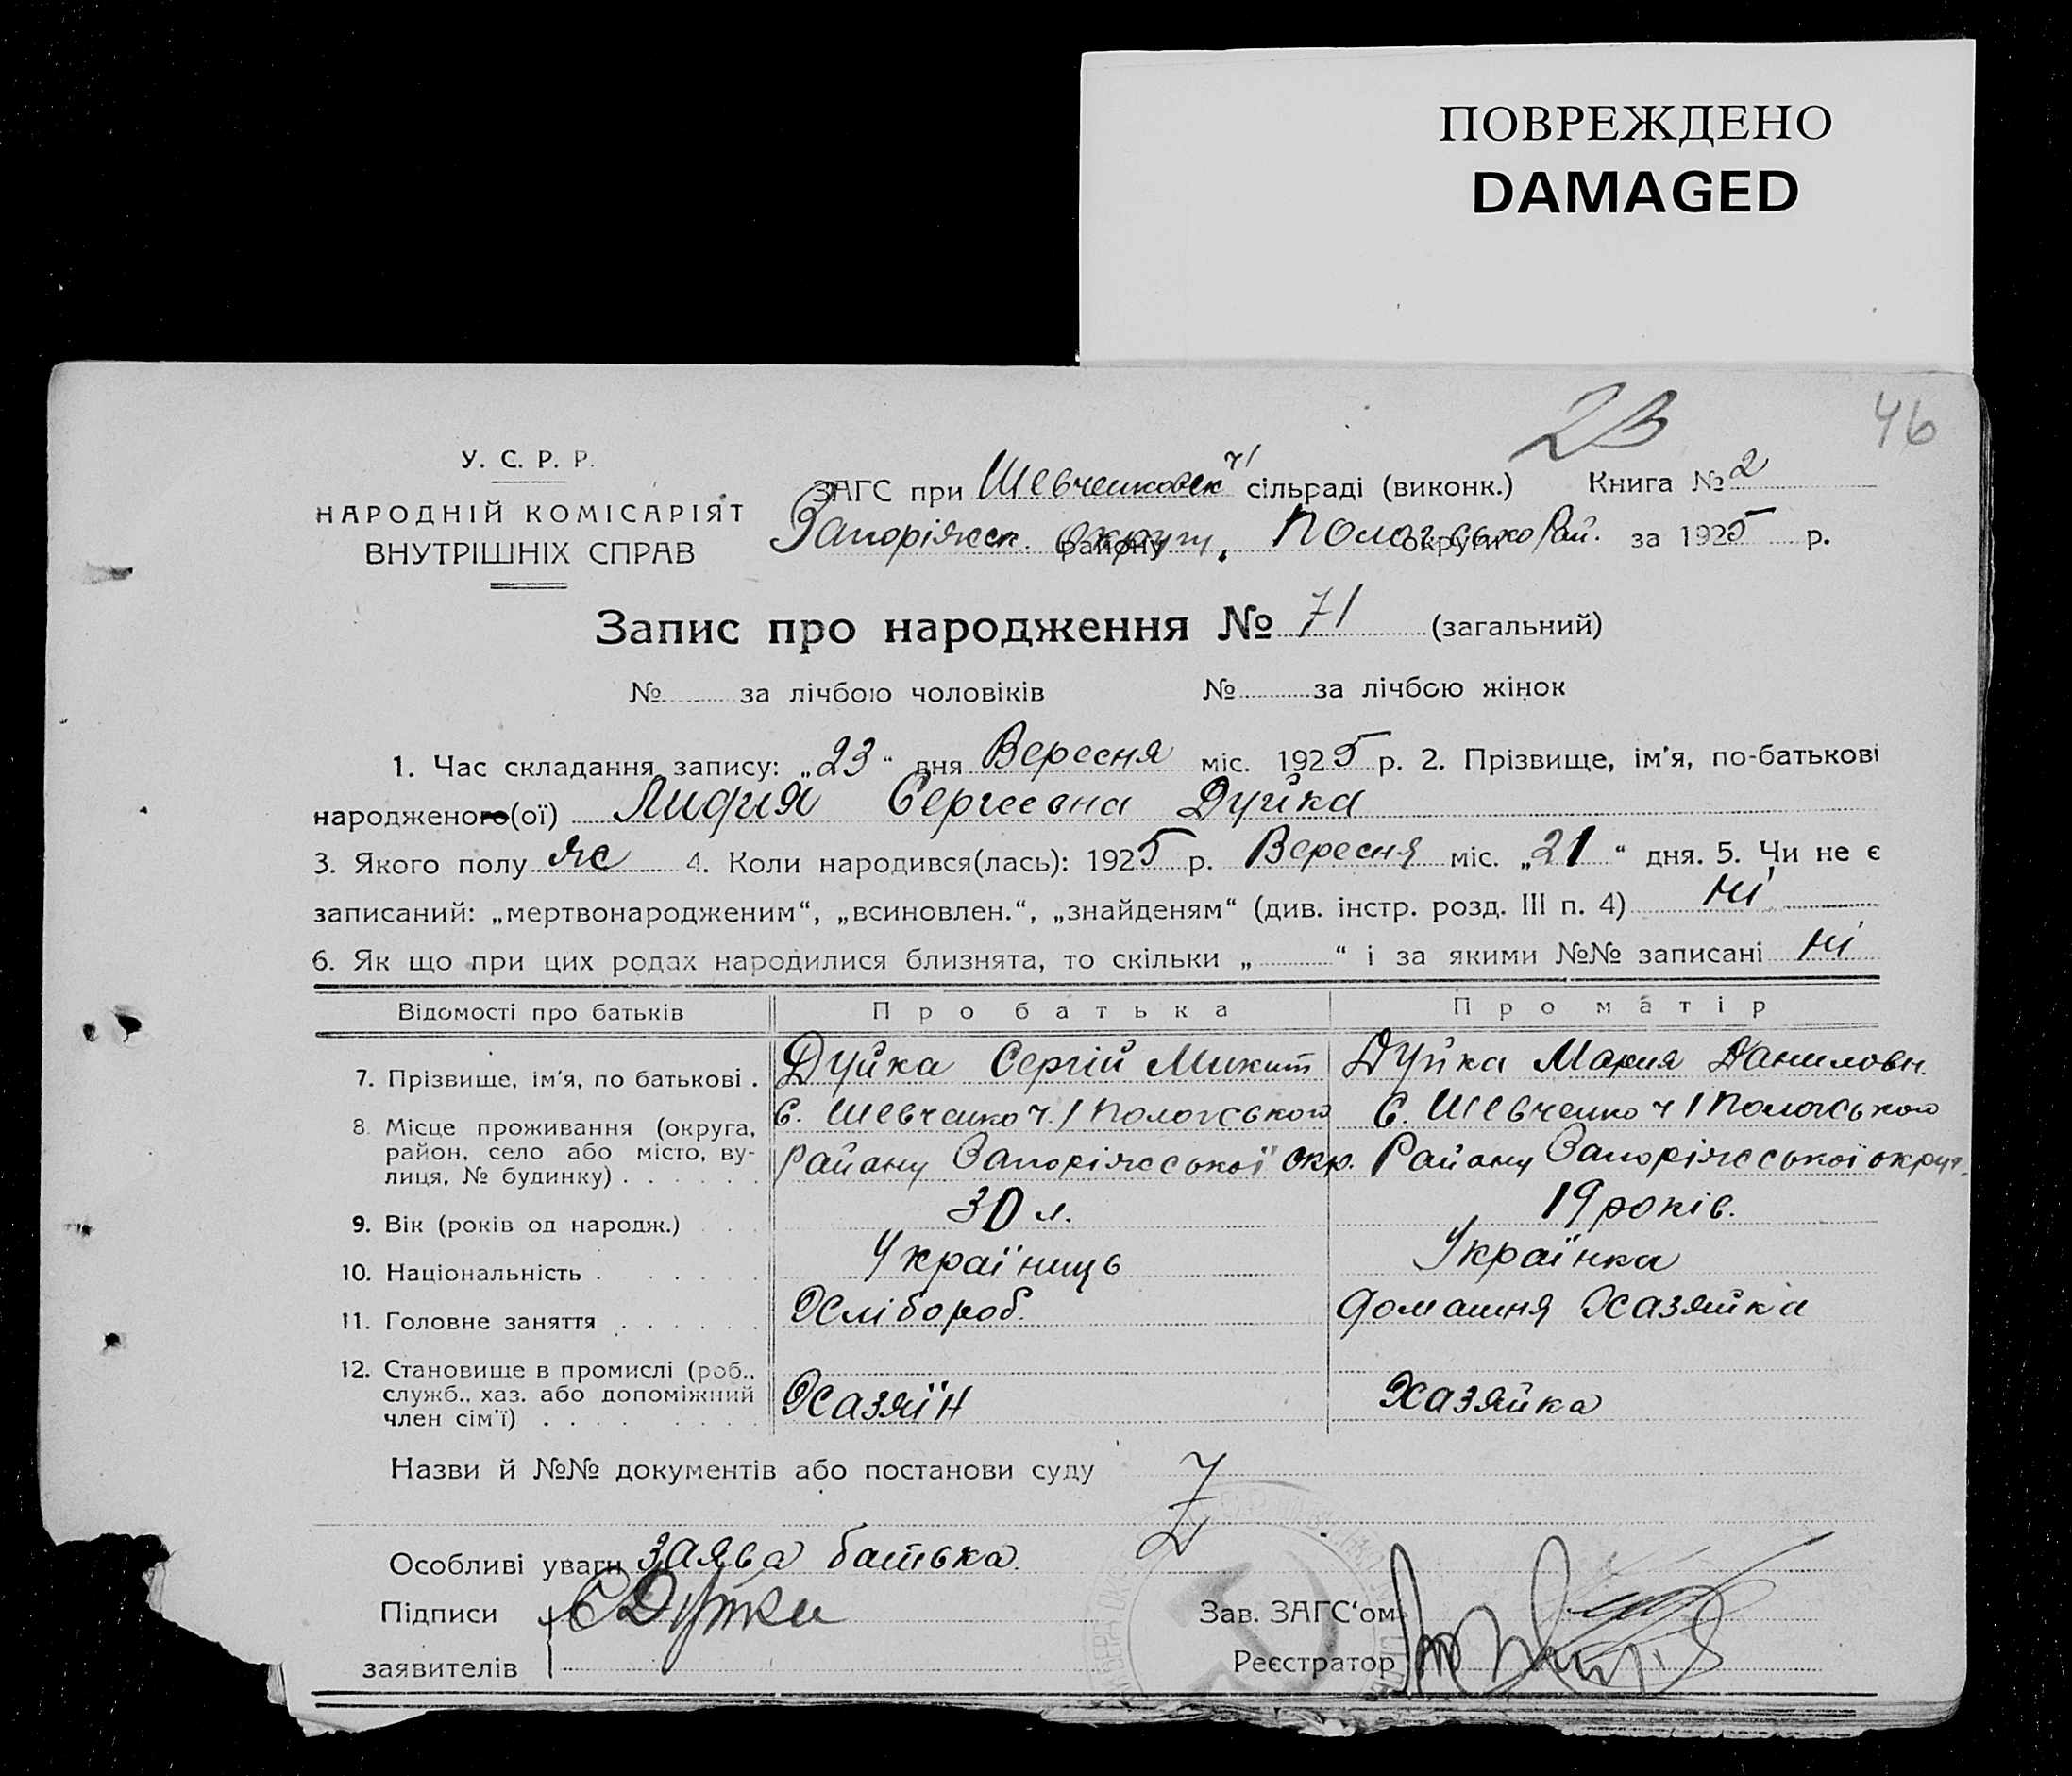 ПОВРЕЖДЕНО
DAMAGED
23
46
У. С. Р. Р.
НАРОДНІЙ КОМІСАРІЯТ
ВНУТРІШНІХ СПРАВ
ЗАГС при Шевченковск ч1 сільраді (виконк.) Книга № 2
Запоріжск. округи району, Пологсько Рай. округи за 1925 р.
Запис про народження № 71 (загальний)
№ за лічбою чоловіків № за лічбою жінок
1. Час складання запису: „23“ дня Вересня міс. 1925 р. 2. Прізвище, ім'я, по-батькові
народженого(ої) Лидия Сергеевна Дуйка
3. Якого полу жс 4. Коли народився(лась): 1925 р. Вересня міс. „21“ дня. 5. Чи не є
записаний: „мертвонародженим“, „всиновлен.“, „знайденям“ (див. інстр. розд. III п. 4) Ні
6. Як що при цих родах народилися близнята, то скільки „ “ і за якими №№ записані Ні
Відомості про батьків Про батька Про матір
7. Прізвище, ім'я, по батькові . Дуйка Сергій Микит Дуйка Мария Даниловн.
8. Місце проживання (округа, район, село або місто, вулиця, № будинку) . . . . . . С. Шевченко ч 1 Пологського С. Шевченко ч 1 Пологського
Району Запоріжської окр. Району Запоріжської округ.
9. Вік (років од народж.) . . . 30 л. 19 років.
10. Національність . . . . . . Україниць Українка
11. Головне заняття . . . . . . Хлібороб. домашня Хазяйка
12. Становище в промислі (роб., служб., хаз. або допоміжний член сім'ї) . . . . Хазяїн Хазяйка
Назви й №№ документів або постанови суду
Особливі уваги заява батька.
Підписи С Дуйка Зав. ЗАГС'ом
заявителів Реєстратор